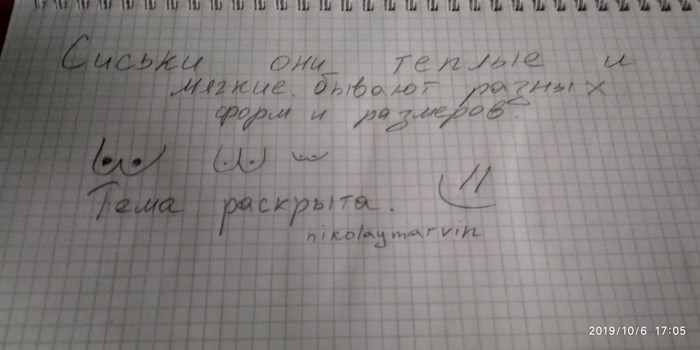 Сиськи они теплые и
мягкие. бывают разных
форм и размеров.
Тема раскрыта.
nikolaymarvin
2019/10/6 17:05